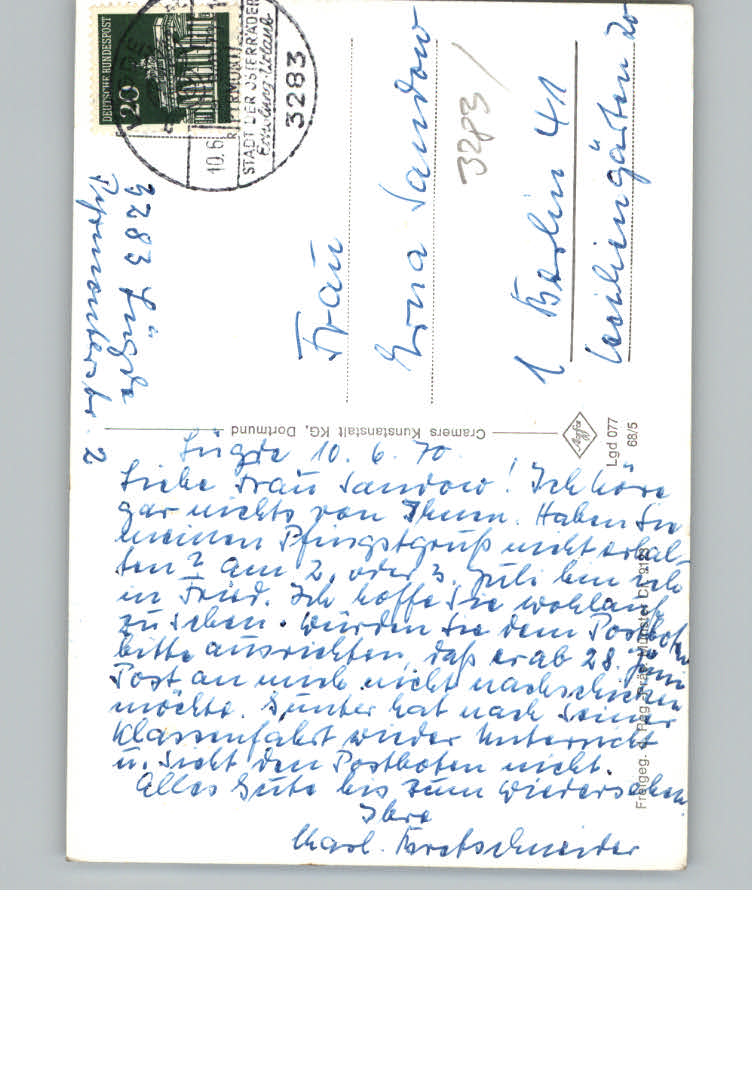 DEUTSCHE BUNDESPOST
20
10.6
STADT DER OSTERRÄDER
Erholung · Urlaub
3283
3283 Lügde
Pyrmonterstr. 2
Frau
Erna Sandow
3283 /
1 Berlin 41
Cäciliengärten 20
Cramers Kunstanstalt KG, Dortmund
Lgd 077
68/5
Freigeg. d. Reg. Präs. Münster
Lügde 10. 6. 70.
Liebe Frau Sandow! Ich höre
gar nichts von Ihnen. Haben Sie
meinen Pfingstgruß nicht erhal-
ten? Am 2. oder 3. Juli bin ich
in Fried. Ich hoffe Sie wohlauf
zu sehen. Würden Sie dem Postboten
bitte ausrichten, daß er ab 28. Juni
Post an mich nicht nachschicken
möchte. Günter hat nach seiner
Klassenfahrt wieder Unterricht
u. sieht den Postboten nicht.
Alles Gute bis zum Wiedersehen
Ihre
Charl. Kretschneider